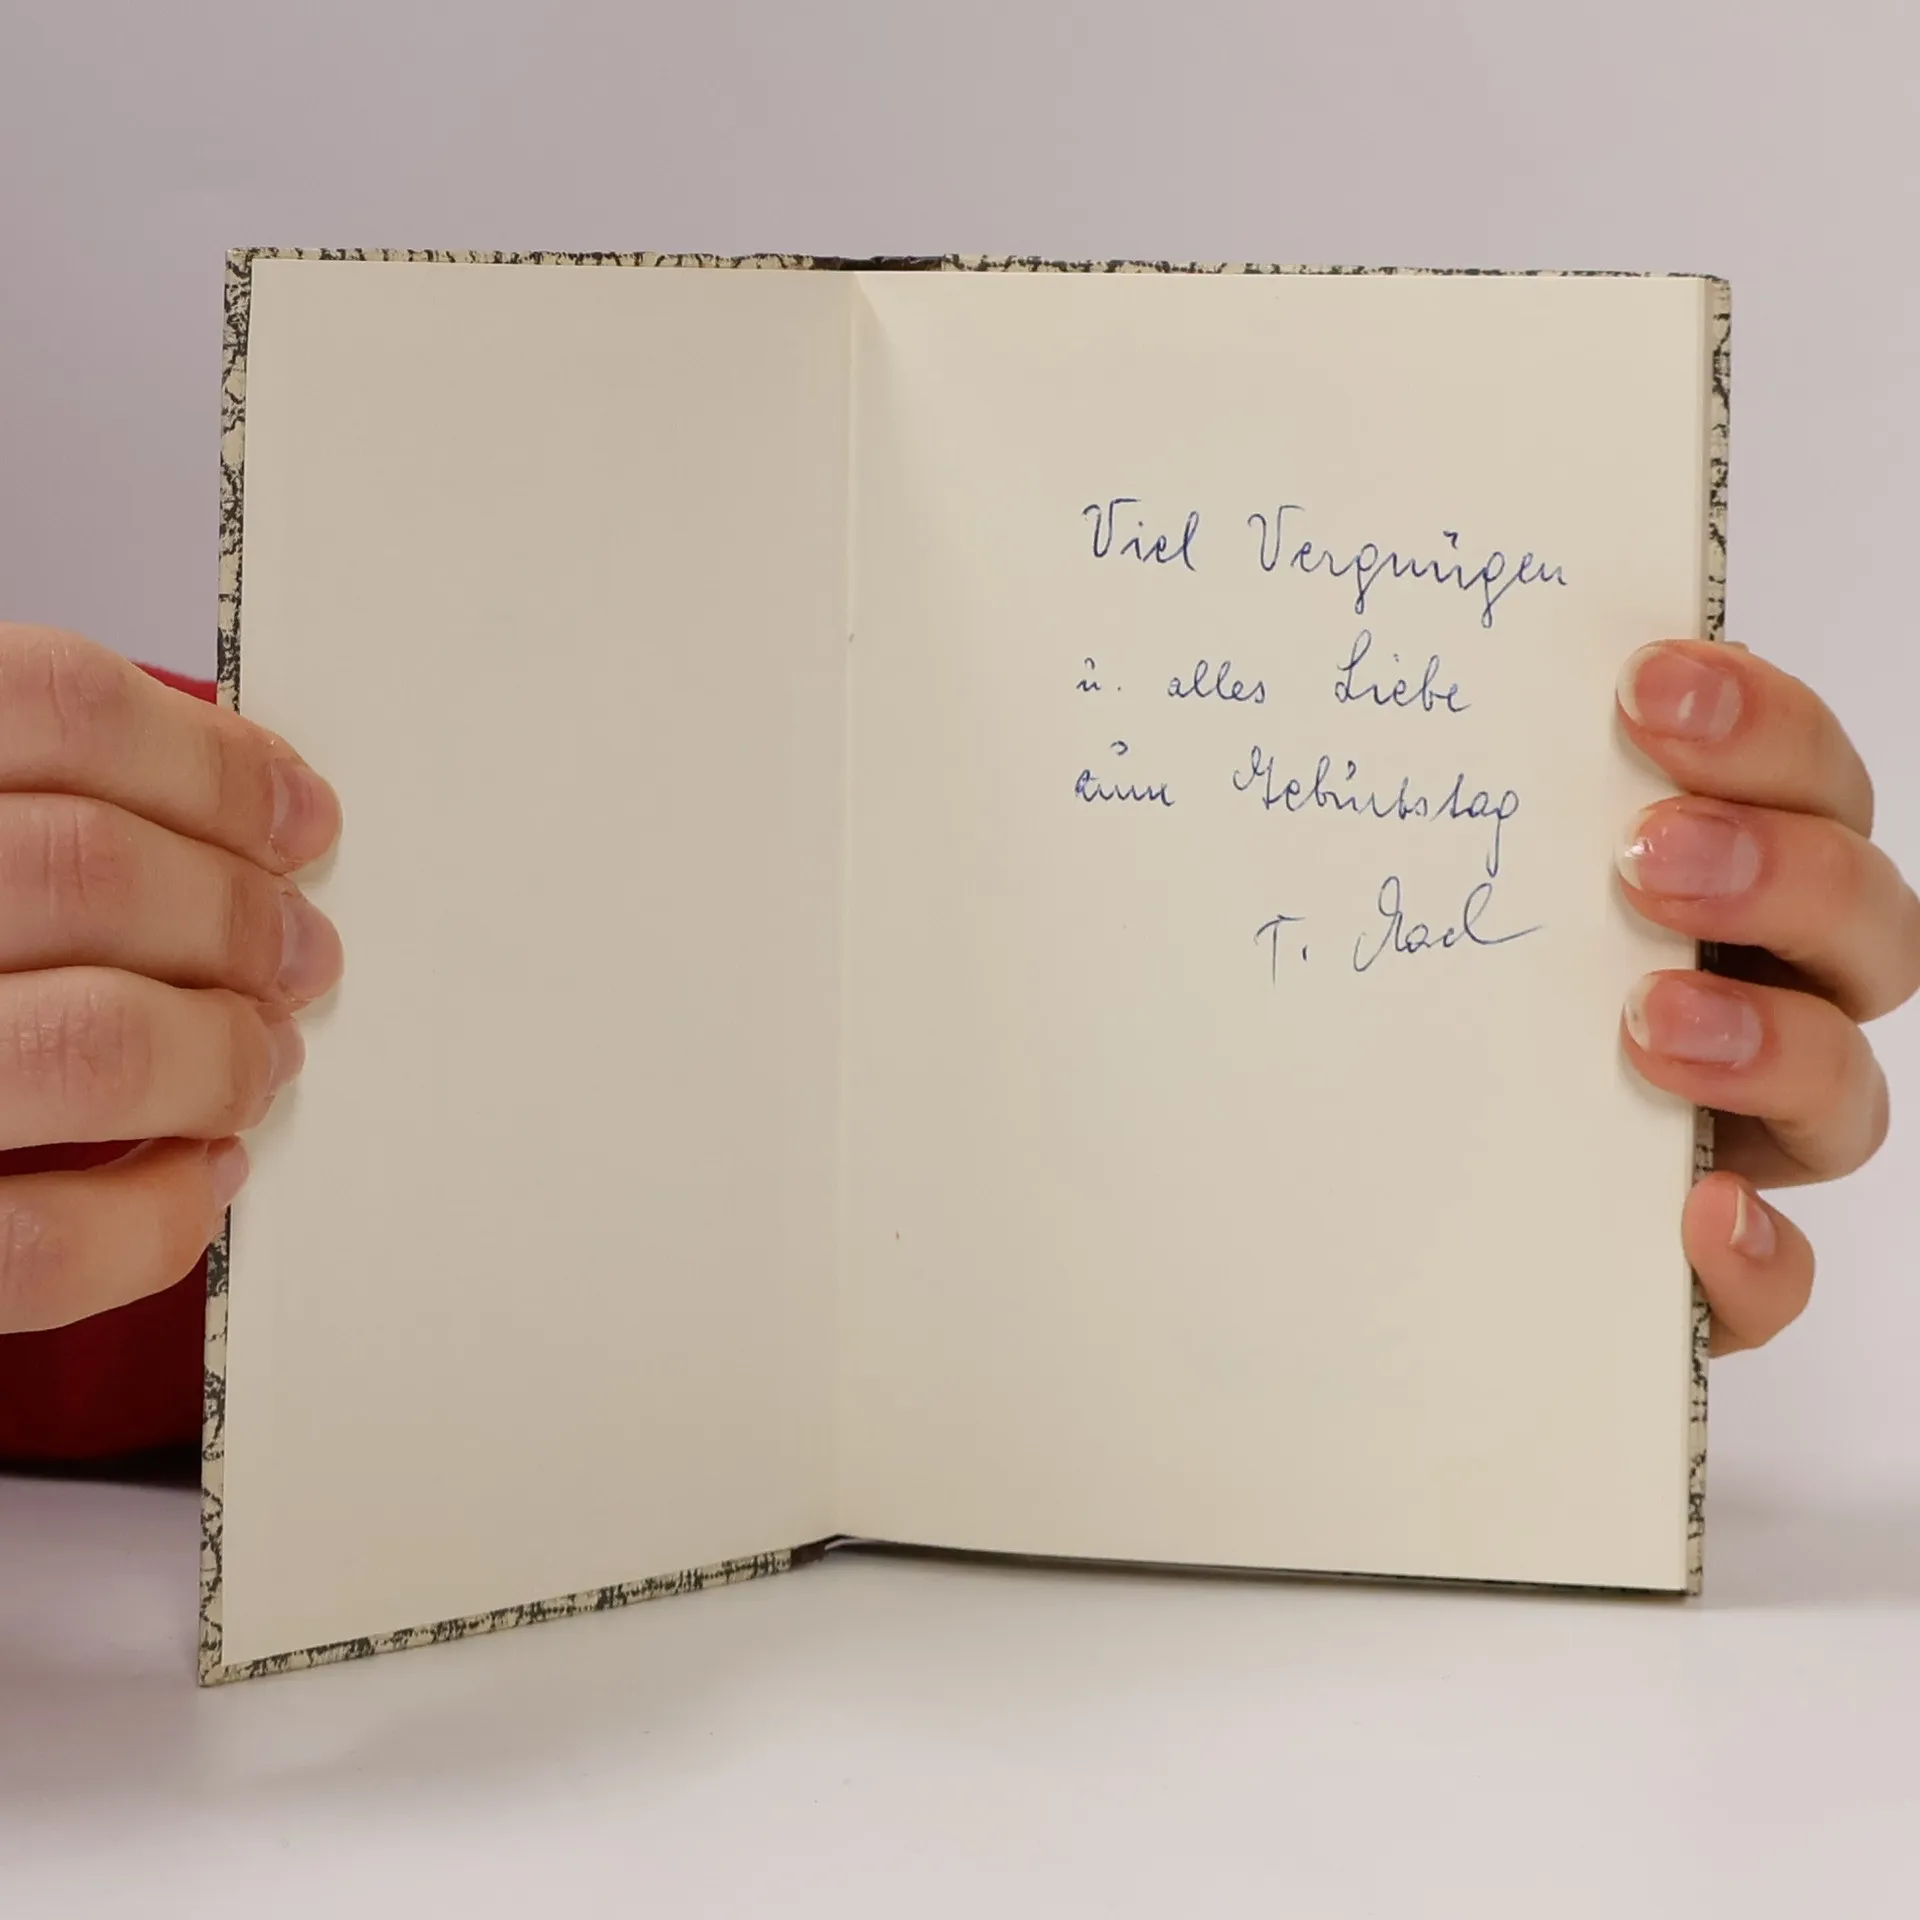 Viel Vergnügen
u. alles Liebe
zum Geburtstag
T.